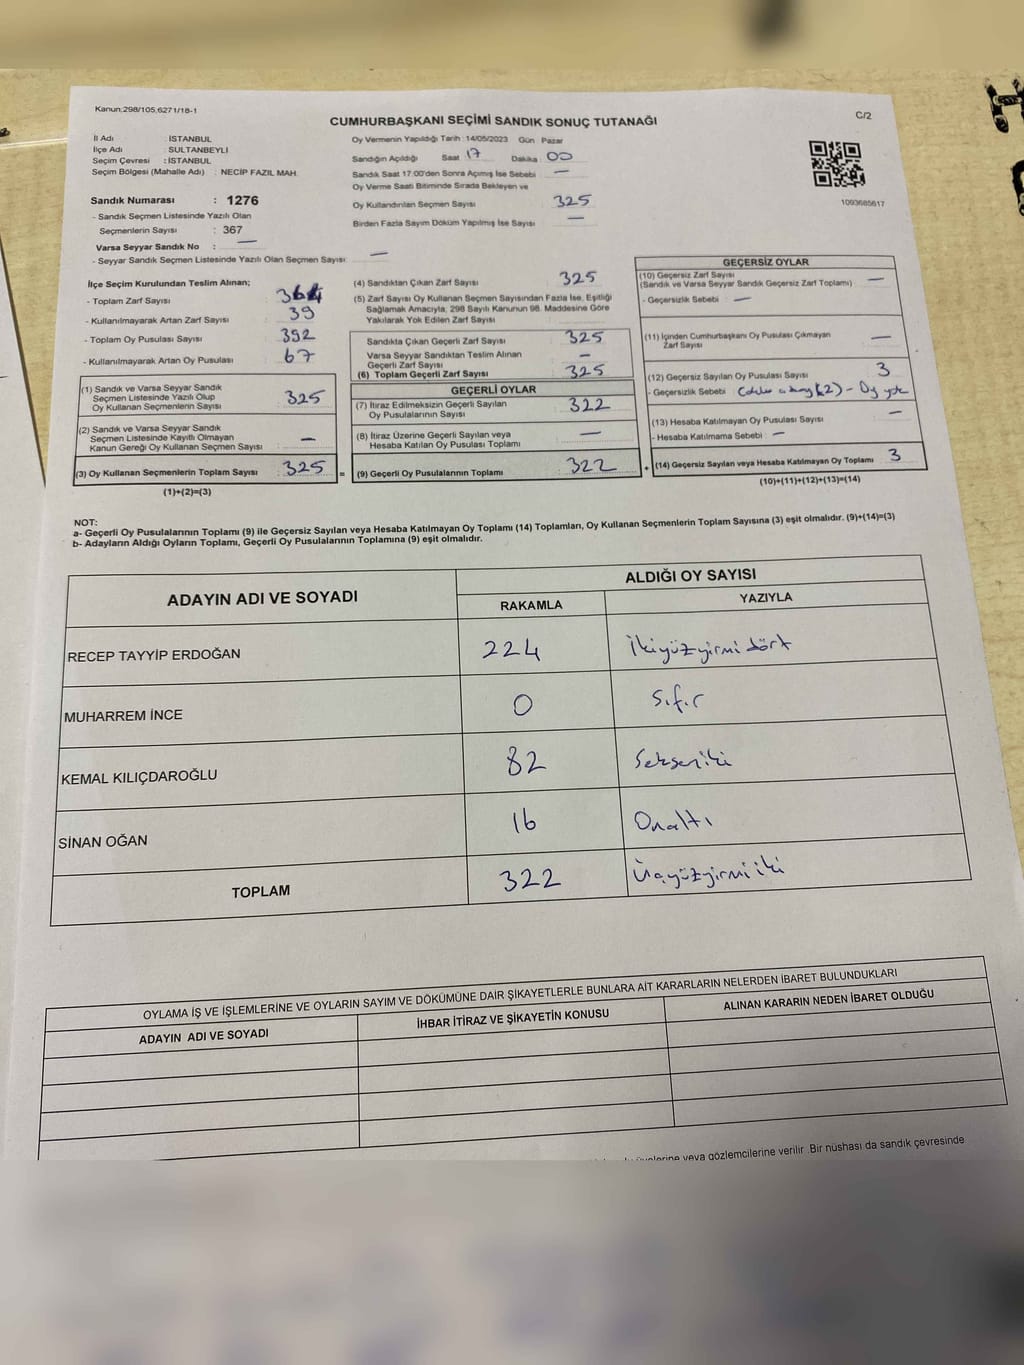 Kanun;298/105,6271/18-1
C/2
CUMHURBAŞKANI SEÇİMİ SANDIK SONUÇ TUTANAĞI
İl Adı : İSTANBUL
İlçe Adı : SULTANBEYLİ
Seçim Çevresi : İSTANBUL
Seçim Bölgesi (Mahalle Adı) : NECİP FAZIL MAH.
Sandık Numarası : 1276
- Sandık Seçmen Listesinde Yazılı Olan
Seçmenlerin Sayısı : 367
Varsa Seyyar Sandık No : —
- Seyyar Sandık Seçmen Listesinde Yazılı Olan Seçmen Sayısı: —
Oy Vermenin Yapıldığı Tarih :14/05/2023 Gün Pazar
Sandığın Açıldığı Saat 17 Dakika 00
Sandık Saat 17:00'den Sonra Açımış İse Sebebi —
Oy Verme Saati Bitiminde Sırada Bekleyen ve
Oy Kullandırılan Seçmen Sayısı 325
Birden Fazla Sayım Döküm Yapılmış İse Sayısı —
1093685617
İlçe Seçim Kurulundan Teslim Alınan;
- Toplam Zarf Sayısı : 364
- Kullanılmayarak Artan Zarf Sayısı : 39
- Toplam Oy Pusulası Sayısı : 392
- Kullanılmayarak Artan Oy Pusulası : 67
(1) Sandık ve Varsa Seyyar Sandık
Seçmen Listesinde Yazılı Olup
Oy Kullanan Seçmenlerin Sayısı : 325
(2) Sandık ve Varsa Seyyar Sandık
Seçmen Listesinde Kayıtlı Olmayan
Kanun Gereği Oy Kullanan Seçmen Sayısı : —
(3) Oy Kullanan Seçmenlerin Toplam Sayısı : 325 =
(1)+(2)=(3)
(4) Sandıktan Çıkan Zarf Sayısı : 325
(5) Zarf Sayısı Oy Kullanan Seçmen Sayısından Fazla İse, Eşitliği
Sağlamak Amacıyla, 298 Sayılı Kanunun 98. Maddesine Göre
Yakılarak Yok Edilen Zarf Sayısı
Sandıkta Çıkan Geçerli Zarf Sayısı : 325
Varsa Seyyar Sandıktan Teslim Alınan
Geçerli Zarf Sayısı : —
(6) Toplam Geçerli Zarf Sayısı : 325
GEÇERLİ OYLAR
(7) İtiraz Edilmeksizin Geçerli Sayılan
Oy Pusulalarının Sayısı : 322
(8) İtiraz Üzerine Geçerli Sayılan veya
Hesaba Katılan Oy Pusulası Toplamı : —
(9) Geçerli Oy Pusulalarının Toplamı : 322 +
GEÇERSİZ OYLAR
(10) Geçersiz Zarf Sayısı
(Sandık ve Varsa Seyyar Sandık Geçersiz Zarf Toplamı) : —
- Geçersizlik Sebebi : —
(11) İçinden Cumhurbaşkanı Oy Pusulası Çıkmayan
Zarf Sayısı : —
(12) Geçersiz Sayılan Oy Pusulası Sayısı : 3
- Geçersizlik Sebebi (2) - Oy yok
(13) Hesaba Katılmayan Oy Pusulası Sayısı : —
- Hesaba Katılmama Sebebi : —
(14) Geçersiz Sayılan veya Hesaba Katılmayan Oy Toplamı : 3
(10)+(11)+(12)+(13)=(14)
NOT:
a- Geçerli Oy Pusulalarının Toplamı (9) ile Geçersiz Sayılan veya Hesaba Katılmayan Oy Toplamı (14) Toplamları, Oy Kullanan Seçmenlerin Toplam Sayısına (3) eşit olmalıdır. (9)+(14)=(3)
b- Adayların Aldığı Oyların Toplamı, Geçerli Oy Pusulalarının Toplamına (9) eşit olmalıdır.
ADAYIN ADI VE SOYADI
ALDIĞI OY SAYISI
RAKAMLA YAZIYLA
RECEP TAYYİP ERDOĞAN 224 İkiyüzyirmi dört
MUHARREM İNCE 0 Sıfır
KEMAL KILIÇDAROĞLU 82 Sekseniki
SİNAN OĞAN 16 Onaltı
TOPLAM 322 Üçyüzyirmiiki
OYLAMA İŞ VE İŞLEMLERİNE VE OYLARIN SAYIM VE DÖKÜMÜNE DAİR ŞİKAYETLERLE BUNLARA AİT KARARLARIN NELERDEN İBARET BULUNDUKLARI
ADAYIN ADI VE SOYADI İHBAR İTİRAZ VE ŞİKAYETİN KONUSU ALINAN KARARIN NEDEN İBARET OLDUĞU
veya gözlemcilerine verilir .Bir nüshası da sandık çevresinde